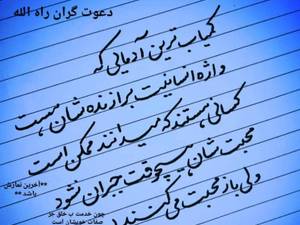 دعوت گران راه الله
کمیاب ترین آدمهایی که
واژه انسانیت برازنده شان هست
کسانی هستند که میدانند ممکن است
محبت شان، هیچوقت جبران نشود
ولی باز محبت می کنند
**آخرین نمازتان
باشد **
چون خدمت ب خلق جز
صفات خوبشان است